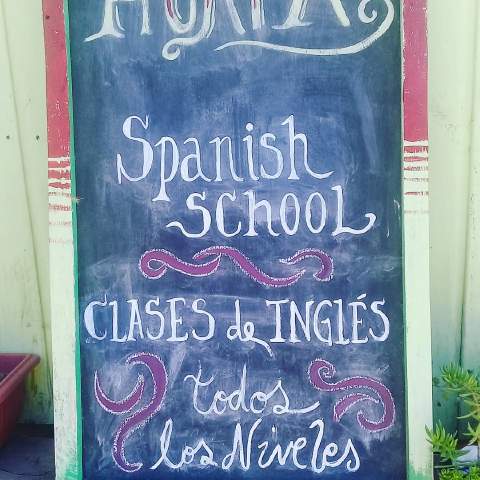 Spanish
SCHOOL
CLASES de INGLÉS
todos
los Niveles